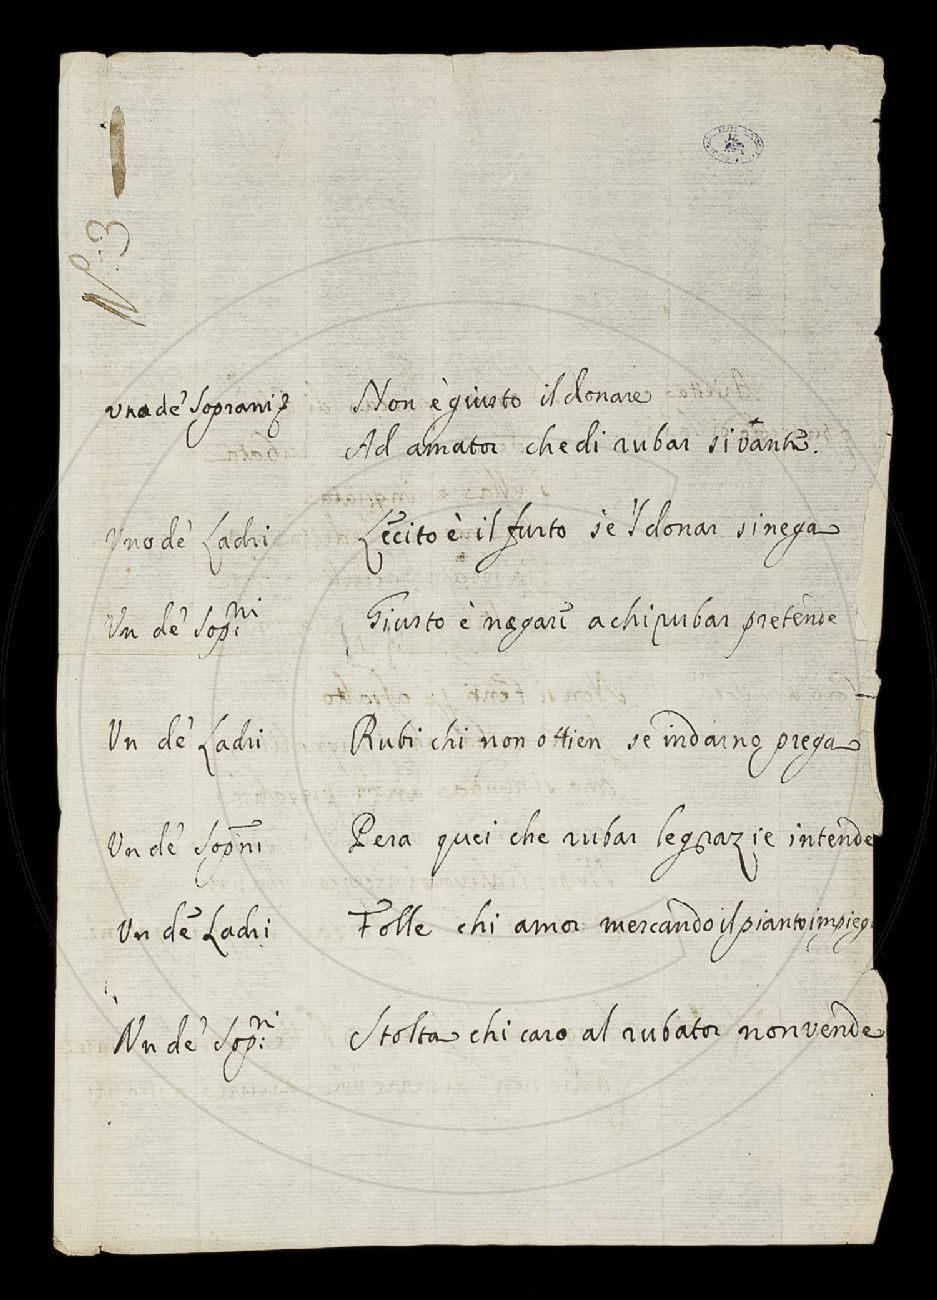 N.º 3
Uno de' Soprani Non è giusto il donare
Ad amator che di rubar si vante.
Uno de' Ladri Lecito è il furto se 'l donar si nega
Un de' Sop.ni Giusto è negare a chi rubar pretende
Un de' Ladri Rubi chi non ottien se indarno prega
Un de' Sopni Pera quei che rubar le grazie intende
Un de' Ladri Folle chi amor mercando il pianto impieg
Un de' Sop.ni Stolta chi caro al rubator non vende